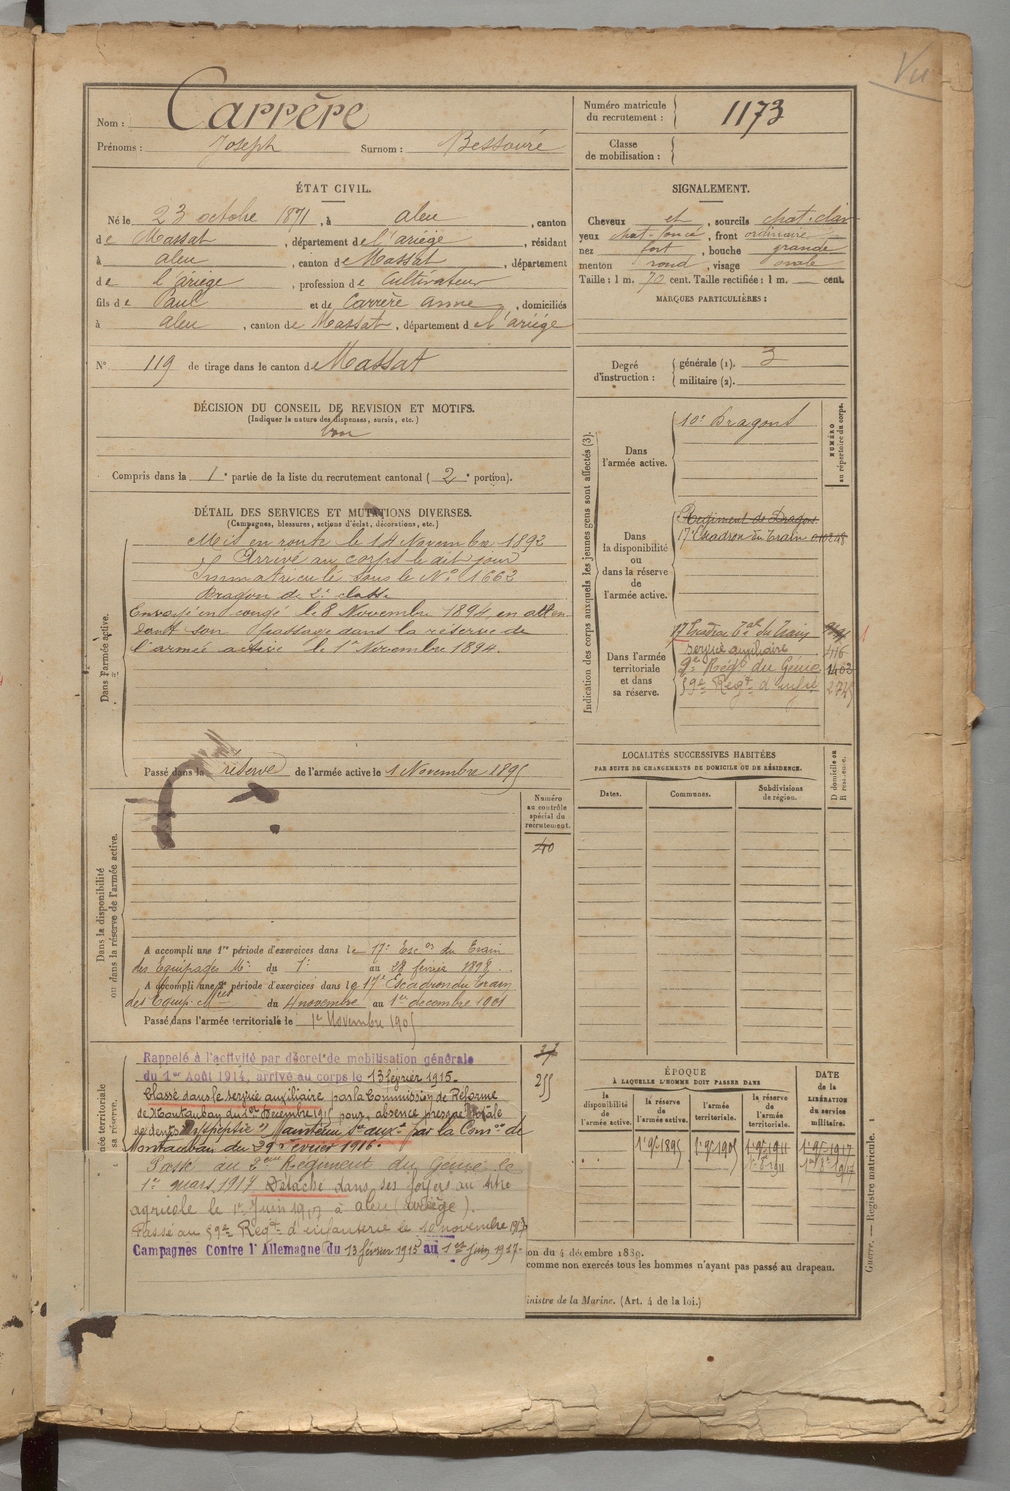 Vu
Nom : Carrère
Prénoms : Joseph Surnom : Bessouré
Numéro matricule du recrutement : 1173
Classe de mobilisation :
ÉTAT CIVIL.
Né le 23 octobre 1871, à aleu, canton
de Massat, département de l'ariège, résidant
à aleu, canton de Massat, département
de l'ariège, profession de Cultivateur
fils de Paul et de Carrère Anne, domiciliés
à aleu, canton de Massat, département de l'ariège
N° 119 de tirage dans le canton de Massat
SIGNALEMENT.
Cheveux et, sourcils chat. clair
yeux chat-foncé, front ordinaire
nez fort, bouche grande
menton rond, visage ovale
Taille : 1 m. 70 cent. Taille rectifiée : 1 m. — cent.
MARQUES PARTICULIÈRES :
Degré d'instruction : générale (1). 3
militaire (2).
DÉCISION DU CONSEIL DE REVISION ET MOTIFS.
(Indiquer la nature des dispenses, sursis, etc.)
bon
Compris dans la 1e partie de la liste du recrutement cantonal (2e portion).
DÉTAIL DES SERVICES ET MUTATIONS DIVERSES.
(Campagnes, blessures, actions d'éclat, décorations, etc.)
Dans l'armée active.
Mis en route le 14 Novembre 1892
Arrivé au corps le dit jour
Immatriculé sous le N° 1662
Dragon de 2e classe
Envoyé en congé le 8 Novembre 1894, en atten-
dant son passage dans la réserve de
l'armée active le 1er Novembre 1894.
Passé dans la réserve de l'armée active le 1 Novembre 1895
Indication des corps auxquels les jeunes gens sont affectés (3).
NUMÉRO au répertoire du corps.
Dans l'armée active.
10e Dragons
Dans la disponibilité ou dans la réserve de l'armée active.
Régiment de Dragons
17e Escadron du Train
Dans l'armée territoriale et dans sa réserve.
17 Escadron Tal du Train
service auxiliaire 416
2e Régt du Génie 1402
59e Régt d'infie
LOCALITÉS SUCCESSIVES HABITÉES
PAR SUITE DE CHANGEMENTS DE DOMICILE OU DE RÉSIDENCE.
Dates. Communes. Subdivisions de région. D domicile ou R résidence.
Dans la disponibilité ou dans la réserve de l'armée active.
Numéro au contrôle spécial du recrutement.
40
A accompli une 1re période d'exercices dans le 17e Escon du Train
des Equipages Mre du 1er au 28 février 1898.
A accompli une 2e période d'exercices dans le 17e Escadron du Train
des Equip. Mres du 4 novembre au 1er decembre 1901
Passé dans l'armée territoriale le 1er Novembre 1905
territoriale sa réserve.
255
Rappelé à l'activité par décret de mobilisation générale
du 1er Août 1914, arrivé au corps le 13 février 1915.
Classé dans le service auxiliaire par la Commission de Réforme
de Montauban du 1er Decembre 1915 pour absence presque totale
de dents dyspeptie Maintenu Sce auxre par la Comon de
Montauban du 29 février 1916.
Passé au 2eme Régiment du Génie le
1er mars 1917 Détaché dans ses foyers au titre
agricole le 1er Juin 1917 à aleu (ariège).
Passé au 59e Régt d'infanterie le 10 novembre 1917
Campagnes Contre l'Allemagne du 13 février 1915 au 1er juin 1917.
ÉPOQUE
À LAQUELLE L'HOMME DOIT PASSER DANS
la disponibilité de l'armée active. la réserve de l'armée active. l'armée territoriale. la réserve de l'armée territoriale. DATE de la LIBÉRATION du service militaire.
1er 9bre 1895 1er 9bre 1905 1er 9bre 1911 1er 9bre 1917
on du 4 décembre 1889.
comme non exercés tous les hommes n'ayant pas passé au drapeau.
inistre de la Marine. (Art. 4 de la loi.)
Guerre. — Registre matricule. 1